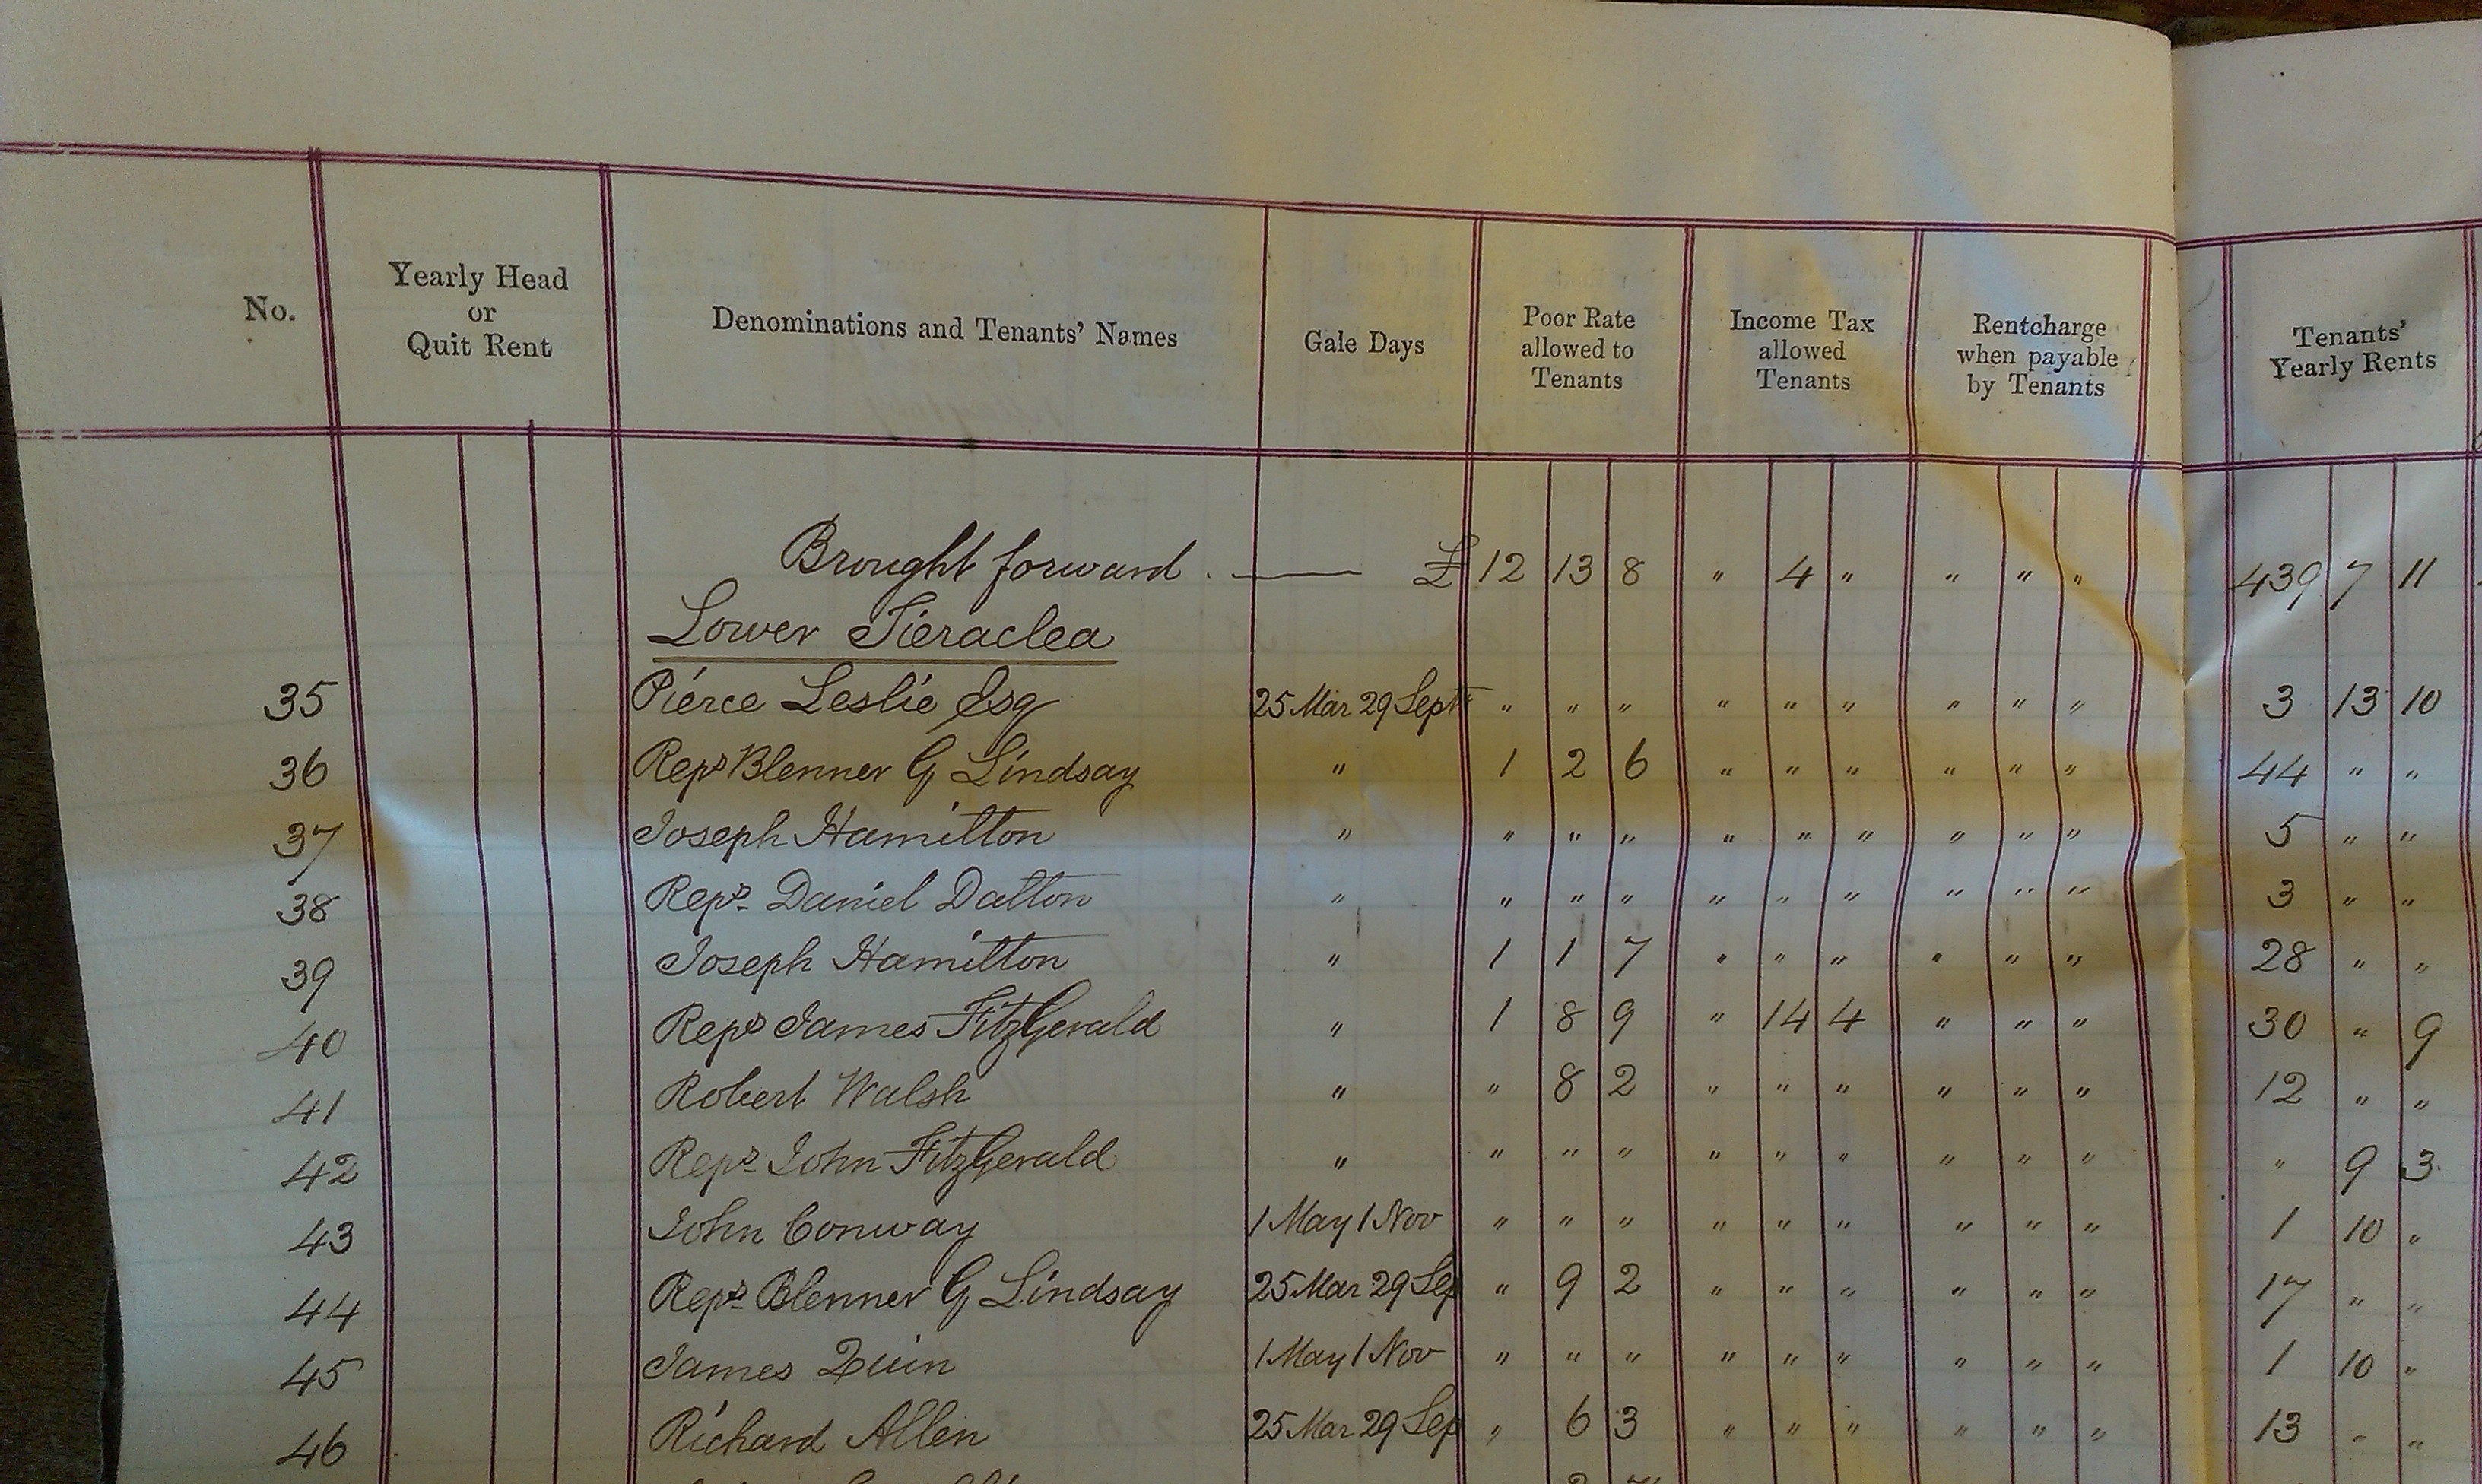 No.
Yearly Head
or
Quit Rent
Denominations and Tenants' Names
Gale Days
Poor Rate
allowed to
Tenants
Income Tax
allowed
Tenants
Rentcharge
when payable
by Tenants
Tenants'
Yearly Rents
Brought forward . — £ 12 13 8 " 4 " " " " 439 7 11
Lower Tieraclea
35 Pierce Leslie Esq 25 Mar 29 Sept " " " " " " " " " 3 13 10
36 Reps Blenner G Lindsay " 1 2 6 " " " " " " 44 " "
37 Joseph Hamilton " " " " " " " " " " 5 " "
38 Reps Daniel Dalton " " " " " " " " " " 3 " "
39 Joseph Hamilton " 1 1 7 " " " " " " 28 " "
40 Reps James FitzGerald " 1 8 9 " 14 4 " " " 30 " 9
41 Robert Walsh " " 8 2 " " " " " " 12 " "
42 Reps John FitzGerald " " " " " " " " " " " 9 3
43 John Conway 1 May 1 Nov " " " " " " " " " 1 10 "
44 Reps Blenner G Lindsay 25 Mar 29 Sep " 9 2 " " " " " " 17 " "
45 James Quin 1 May 1 Nov " " " " " " " " " 1 10 "
46 Richard Allen 25 Mar 29 Sep " 6 3 " " " " " " 13 " "